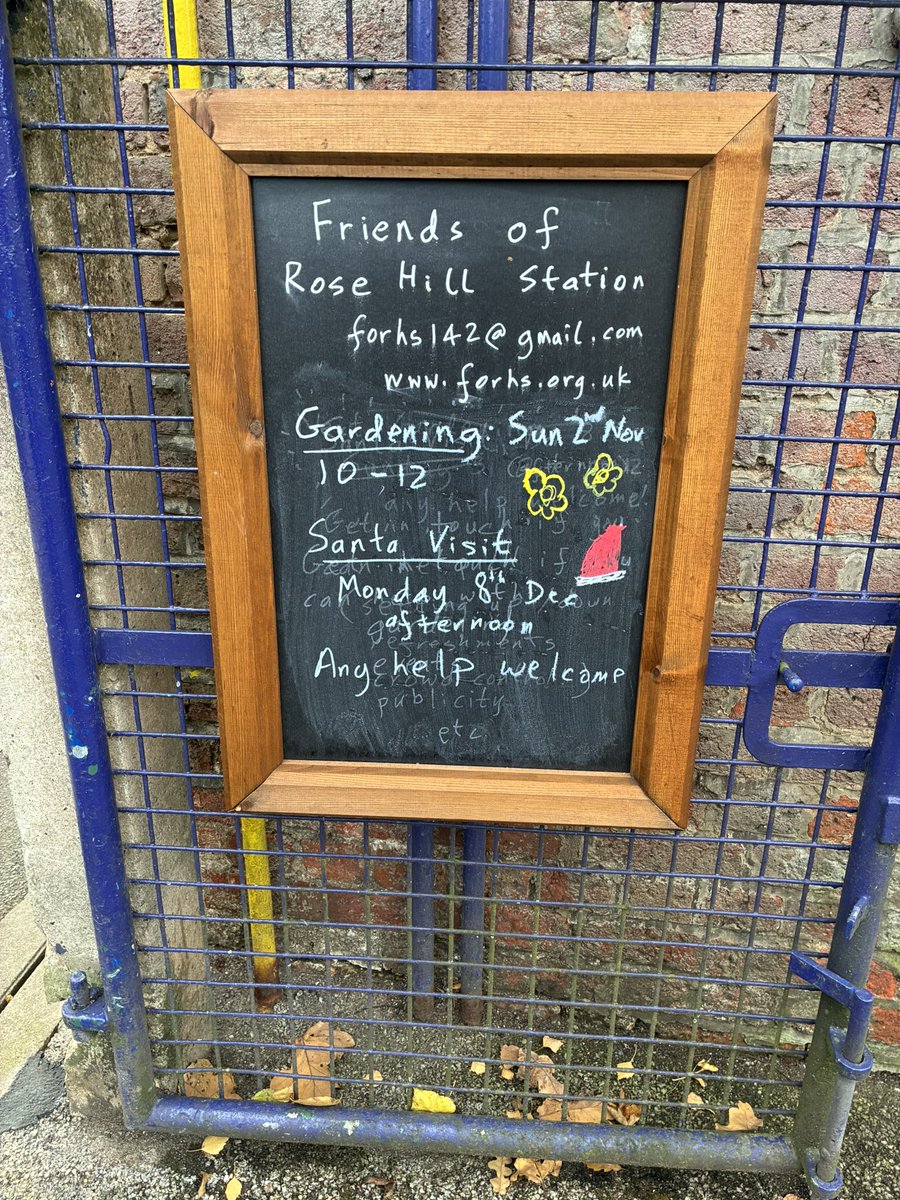 Friends of
Rose Hill Station
forhs142@gmail.com
www.forhs.org.uk
Gardening: Sun 2nd Nov
10-12
Santa Visit
Monday 8th Dec
afternoon
Any help welcome
publicity
etc